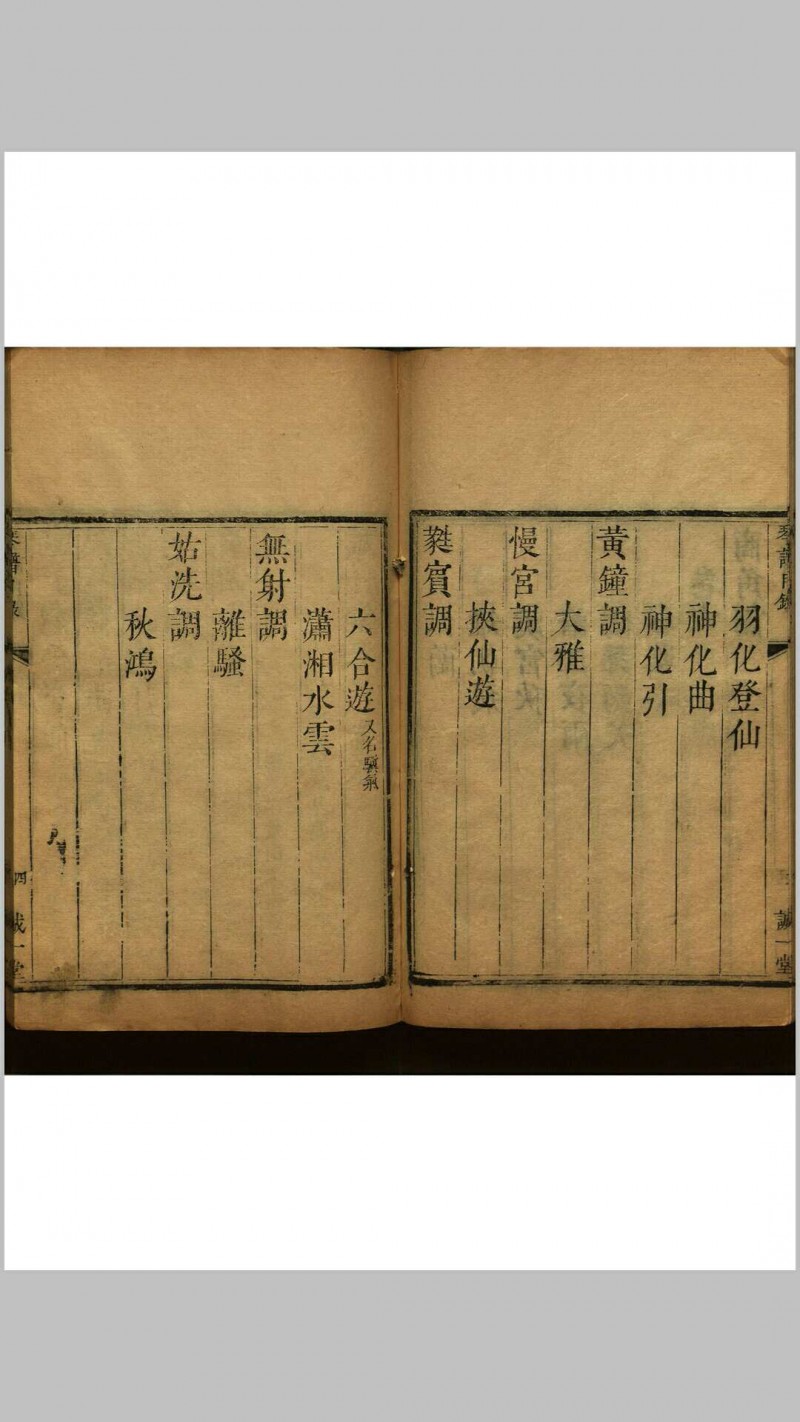 羽化登仙
神化曲
神化引
黃鐘調
大雅
慢宮調
挾仙遊
蕤賓調
六合遊又名驥氣
瀟湘水雲
無射調
離騷
姑洗調
秋鴻
四
誠一堂
誠一堂